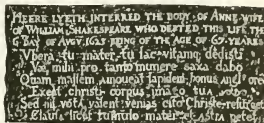 HEERE LYETH INTERRED THE BODY OF ANNE WIFE
OF WILLIAM SHAKESPEARE WHO DEPTED THIS LIFE THE
6 DAY OF AVGV: 1623 BEING OF THE AGE OF 67 YEARES
Vbera, tu mater, tu lac, vitamq dedisti
Væ mihi pro tanto munere saxa dabo
Quam mallem, amoueat lapidem, bonus angl ore
Exeat christi corpus imago tua
Sed nil vota valent venias cito Christe resurget
Clausa licet tumulo mater et astra petet